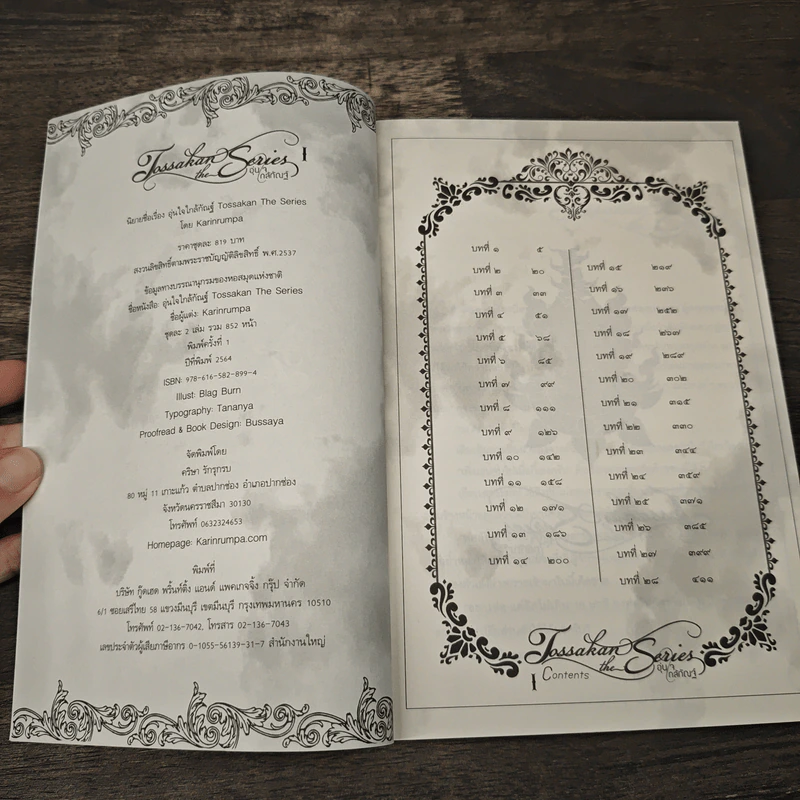 Tossakan the Series I
อุ่นใจใกล้กัณฐ์
นิยายชื่อเรื่อง อุ่นใจใกล้กัณฐ์ Tossakan The Series
โดย Karinrumpa
ราคาชุดละ 819 บาท
สงวนลิขสิทธิ์ตามพระราชบัญญัติลิขสิทธิ์ พ.ศ.2537
ข้อมูลทางบรรณานุกรมของหอสมุดแห่งชาติ
ชื่อหนังสือ: อุ่นใจใกล้กัณฐ์ Tossakan The Series
ชื่อผู้แต่ง: Karinrumpa
ชุดละ 2 เล่ม รวม 852 หน้า
พิมพ์ครั้งที่ 1
ปีที่พิมพ์ 2564
ISBN: 978-616-582-899-4
Illust: Blag Burn
Typography: Tananya
Proofread & Book Design: Bussaya
จัดพิมพ์โดย
คริษา รักรุกรบ
80 หมู่ 11 เกาะแก้ว ตำบลปากช่อง อำเภอปากช่อง
จังหวัดนครราชสีมา 30130
โทรศัพท์ 0632324653
Homepage: Karinrumpa.com
พิมพ์ที่
บริษัท กู๊ดเฮด พริ้นท์ติ้ง แอนด์ แพคเกจจิ้ง กรุ๊ป จำกัด
6/1 ซอยเสรีไทย 58 แขวงมีนบุรี เขตมีนบุรี กรุงเทพมหานคร 10510
โทรศัพท์ 02-136-7042, โทรสาร 02-136-7043
เลขประจำตัวผู้เสียภาษีอากร 0-1055-56139-31-7 สำนักงานใหญ่
บทที่ ๑ ๕
บทที่ ๒ ๒๐
บทที่ ๓ ๓๓
บทที่ ๔ ๕๑
บทที่ ๕ ๖๘
บทที่ ๖ ๘๕
บทที่ ๗ ๙๙
บทที่ ๘ ๑๑๑
บทที่ ๙ ๑๒๖
บทที่ ๑๐ ๑๔๒
บทที่ ๑๑ ๑๕๘
บทที่ ๑๒ ๑๗๑
บทที่ ๑๓ ๑๘๖
บทที่ ๑๔ ๒๐๐
บทที่ ๑๕ ๒๑๙
บทที่ ๑๖ ๒๓๖
บทที่ ๑๗ ๒๕๒
บทที่ ๑๘ ๒๖๗
บทที่ ๑๙ ๒๘๙
บทที่ ๒๐ ๓๐๒
บทที่ ๒๑ ๓๑๕
บทที่ ๒๒ ๓๓๐
บทที่ ๒๓ ๓๔๔
บทที่ ๒๔ ๓๕๙
บทที่ ๒๕ ๓๗๑
บทที่ ๒๖ ๓๘๕
บทที่ ๒๗ ๓๙๙
บทที่ ๒๘ ๔๑๑
Tossakan the Series
อุ่นใจใกล้กัณฐ์
I Contents